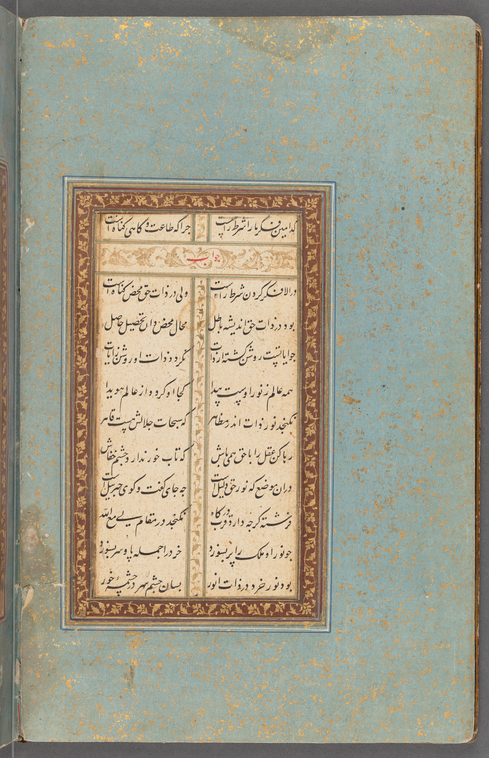 کدامین فکر ما را شرط راهست چرا که طاعت و کاهی کناهست
جواب
در الا فکر کردن شرط راهست ولی در ذات حق محض کناهست
بود در ذات حق اندیشه باطل محال محض دان تحصیل حاصل
جو ایاتست روشن کشته از ذات نکردد ذات او روشن ز ایات
همه عالم ز نور اوست پیدا کجا او کردد از عالم هویدا
نکنجد نور ذات اندر مظاهر که سبحات جلالش هست قاهر
رها کن عقل را با حق همی باش که تاب خور ندارد چشم خفاش
دران موضع که نور حق دلیلست جه جای کفت و کوی جبرئیلست
فرشته کرجه دارد قرب درکاه نکنجد در مقام لی مع الله
جو نور او ملک را پر بسوزد خرد را جمله پا و سر بسوزد
بود نور خرد در ذات انور بسان چشم سر در چشمه خور